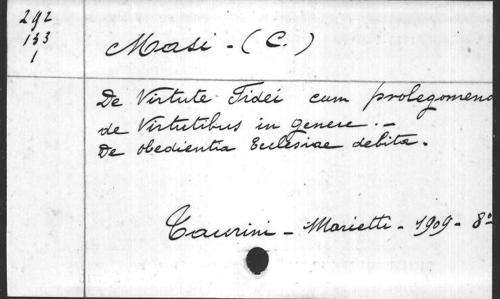 292
133
1
Masi - (C.)
De Virtute Fidei cum prolegomeno
de Virtutibus in genere. -
De obedientia Ecclesiae debita.
Taurini - Marietti - 1909 - 8º